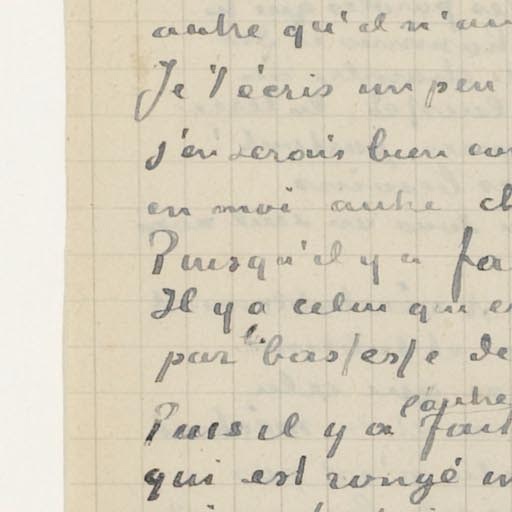 autre qu'il n'au
Je t'écris un peu
j'en serais bien
en moi autre ch
Puisqu'il y a fa
Il y a celui qui e
par les bas/es/e de
l'autre
Puis il y a fait
qui est rongé